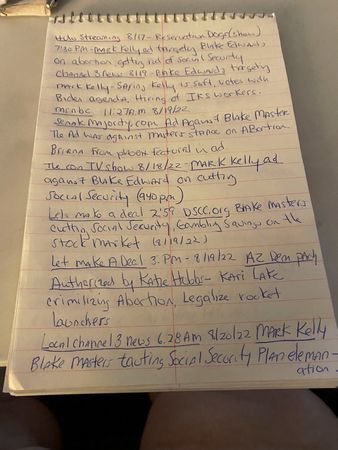 Hulu Streaming 8/17 - Reservation Dogs (show)
7:30 PM - Mark Kelly ad targeting Blake Edward,
on abortion, getting rid of Social Security
Channel 3 news 8/19 - Blake Edwards targeting
Mark Kelly - Saying Kelly is soft, votes with
Biden agenda. Hiring of IRS workers.
MSNBC 11:27 AM 8/19/22
Senate Majority.com Ad Against Blake Master
The Ad was against masters stance on Abortion
Brienna from phoenix featured in ad
The con TV show 8/18/22 - Mark Kelly ad
against Blake Edward on cutting
Social Security (9:40 pm)
Lets make a deal 2:59 DSCC.org Blake Masters
cutting Social Security, Gambling Savings on the
Stock Market (8/19/22)
Let make A Deal 3. PM - 8/19/22 AZ Dem party
Authorized by Katie Hobbs - Kari Lake
crimilizing Abortion, Legalize rocket
launchers
Local channel 3 news 6.28 Am 8/20/22 Mark Kelly
Blake Masters tauting Social Security Plan eleman-
ation.